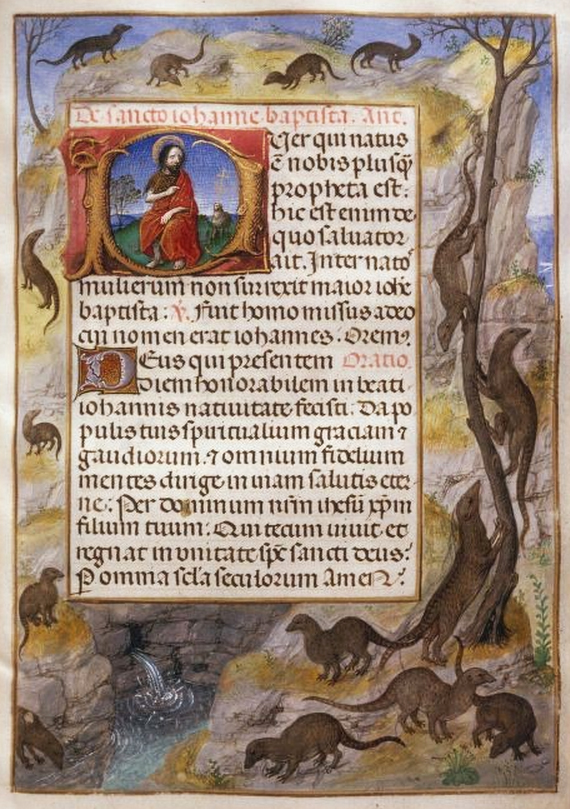 De sancto iohanne baptista. Ant.
Puer qui natus
ē nobis plusq̄
propheta est.
hic est enim de
quo saluator
ait. Inter nato
mulierum non surrexit maior iohe
baptista: V. Fuit homo missus a deo
cui nomen erat iohannes. Orem9.
Deus qui presentem Oratio.
diem honorabilem in beati
iohannis natiuitate fecisti: Da po
pulis tuis spiritualium graciam ⁊
gaudiorum. ⁊ omnium fidelium
mentes dirige in uiam salutis eter
ne: Per dominum nr̄m ihesū xp̄m
filium tuum: Qui tecum uiuit et
regnat in vnitate sp̄c sancti deus:
P omnia scl̄a seculorum Amen.